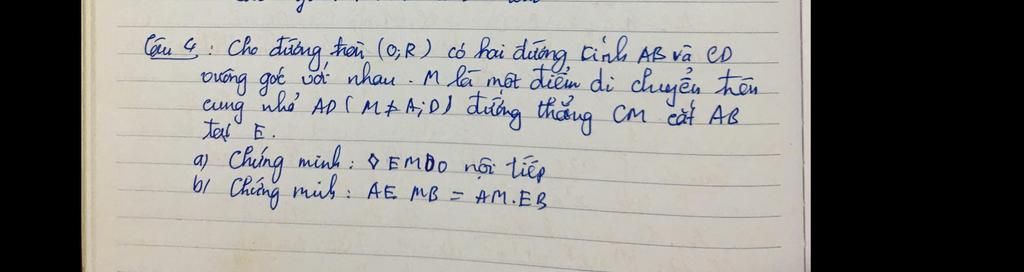 Câu 4 : Cho đường tròn (O;R) có hai đường kính AB và CD
vuông góc với nhau. M là một điểm di chuyển trên
cung nhỏ AD (M ≠ A;D) đường thẳng CM cắt AB
tại E.
a) Chứng minh : ◊ EMDO nội tiếp
b/ Chứng minh : AE MB = AM.EB